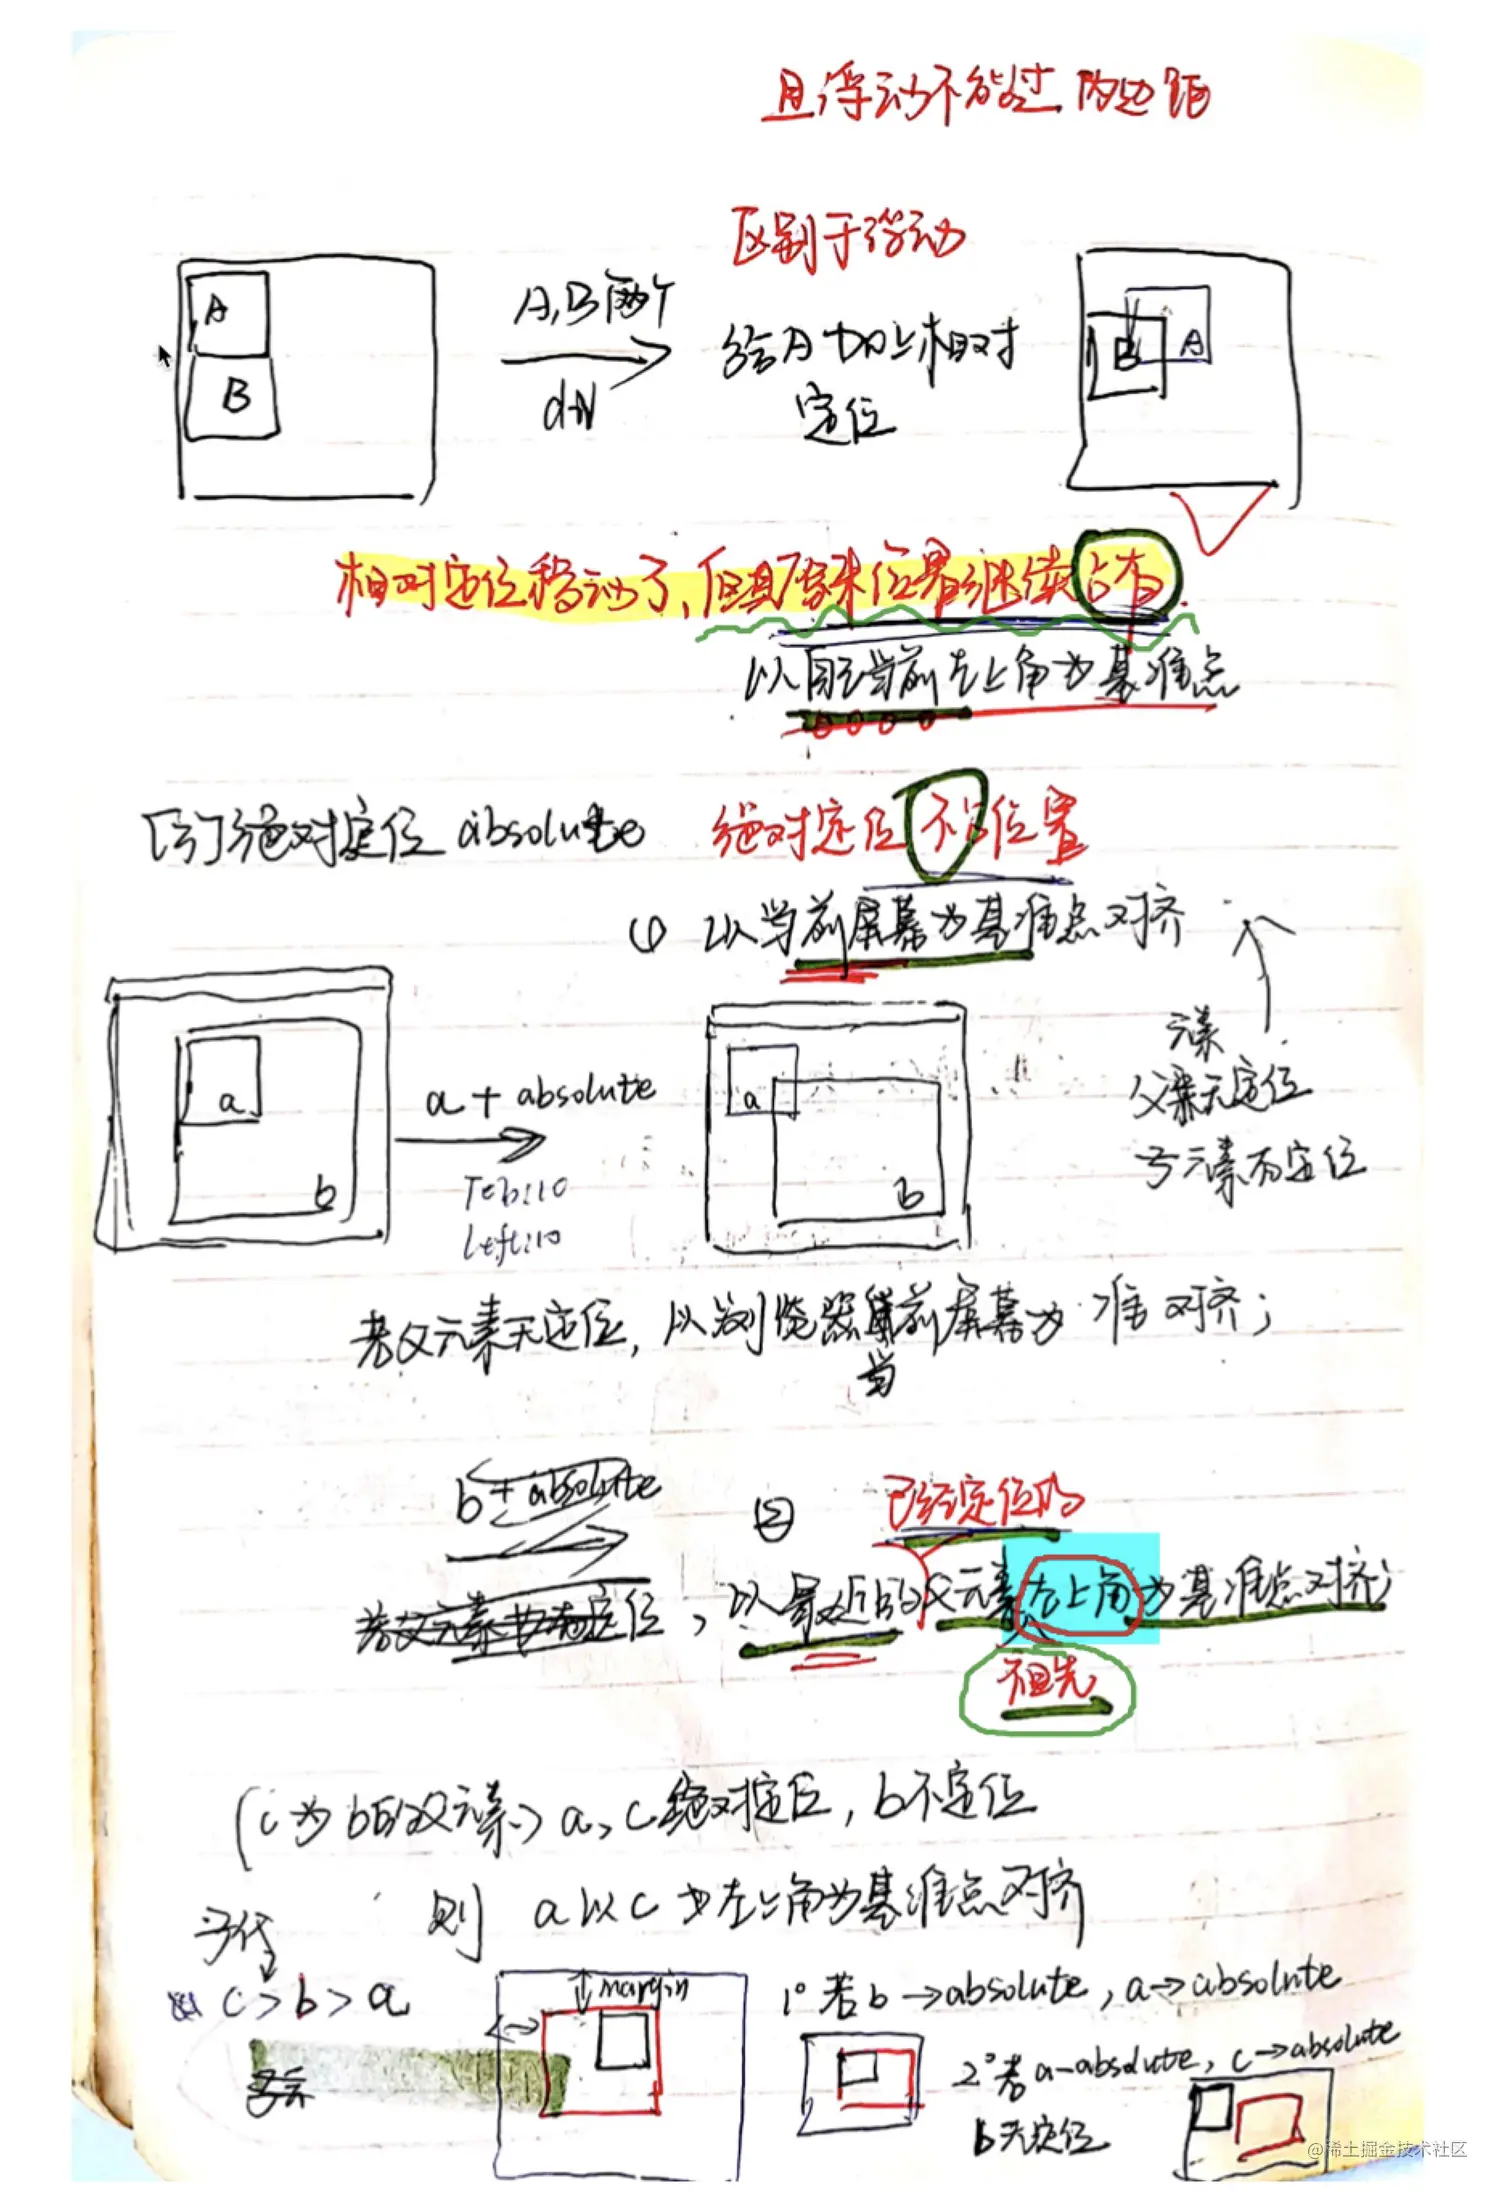 且浮动不能过内边距
区别于浮动
A
B
A,B两个
div
给A加上相对
定位
B
A
相对定位移动了,但其原来位置继续占有.
以自己当前左上角为基准点
绝对定位 absolute 绝对定位不占位置
① 以当前屏幕为基准点对齐
元素
父素无定位
子元素而定位
a
b
a + absolute
left:10
a
b
若父元素无定位,以浏览器当前屏幕为准对齐;
当
b + absolute
② 已经定位的
若父元素也有定位,以最近的父元素左上角为基准点对齐;
祖先
(c为b的父元素) a、c绝对定位,b不定位
则 a以c为左上角为基准点对齐
子代
c > b > a
margin
1° 若b→absolute, a→absolute
2° 若a→absolute, c→absolute
b无定位
@稀土掘金技术社区